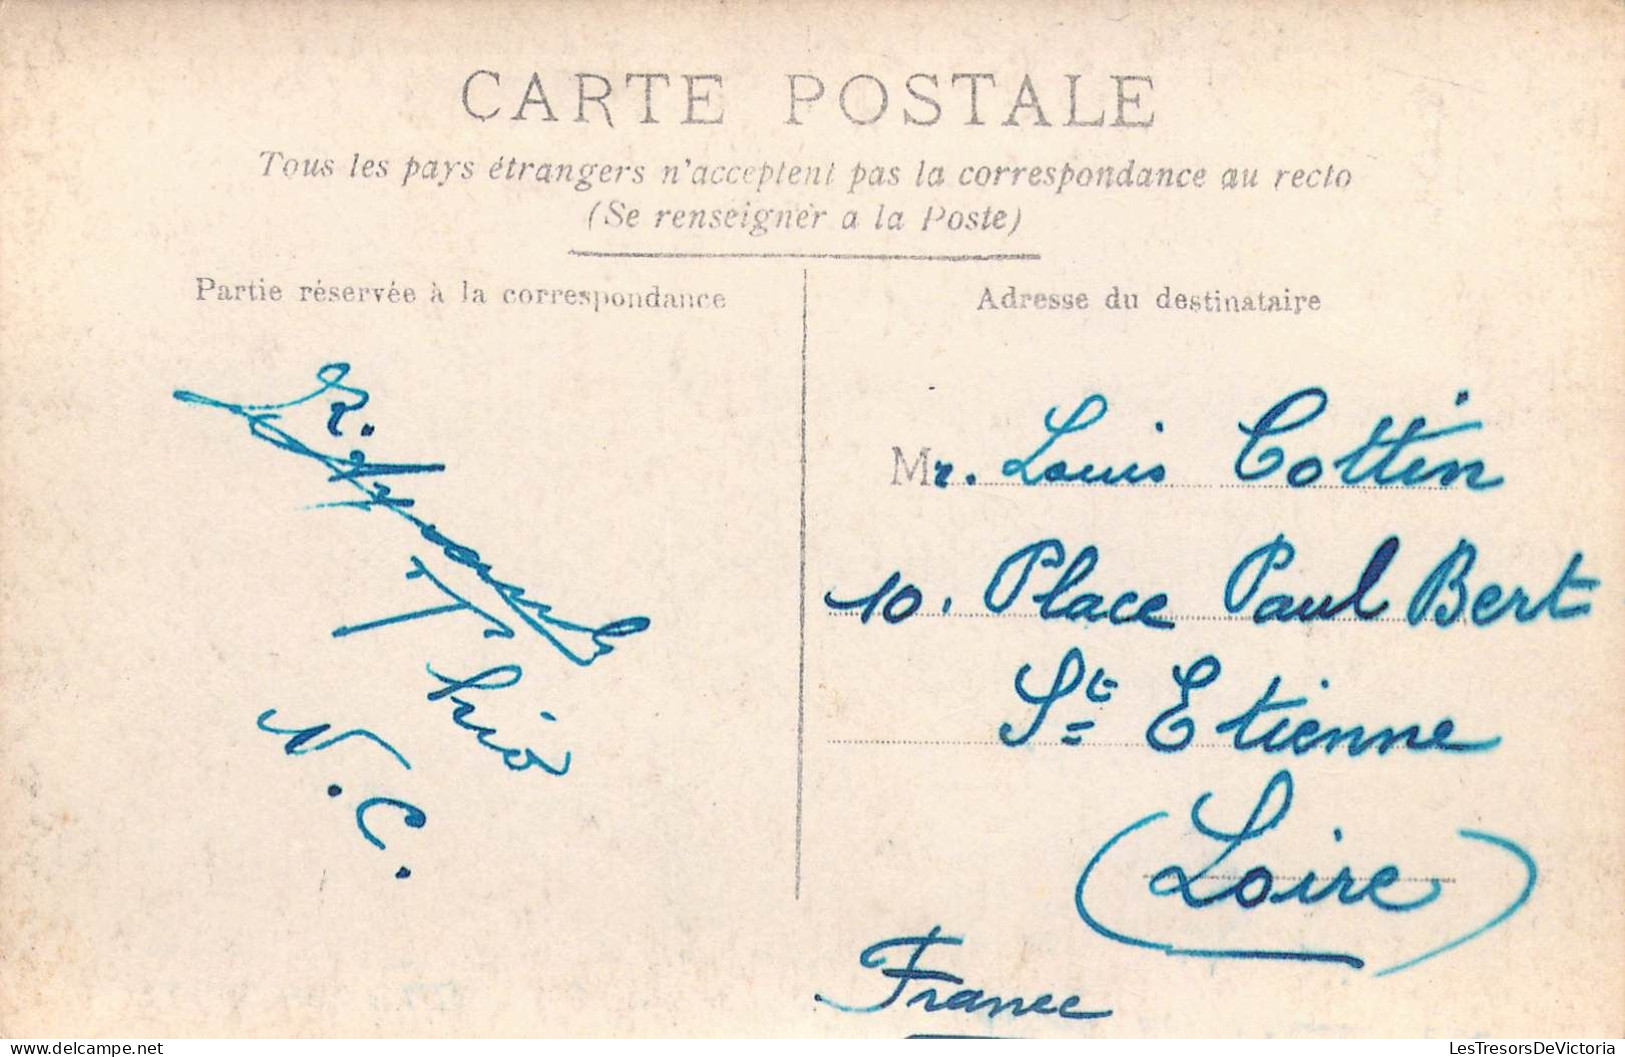 CARTE POSTALE
Tous les pays étrangers n'acceptent pas la correspondance au recto
(Se renseigner a la Poste)
Partie réservée à la correspondance
Adresse du destinataire
R.
Thio
N.C.
Mr. Louis Cottin
10. Place Paul Bert
St Etienne
(Loire)
France
LesTresorsDeVictoria